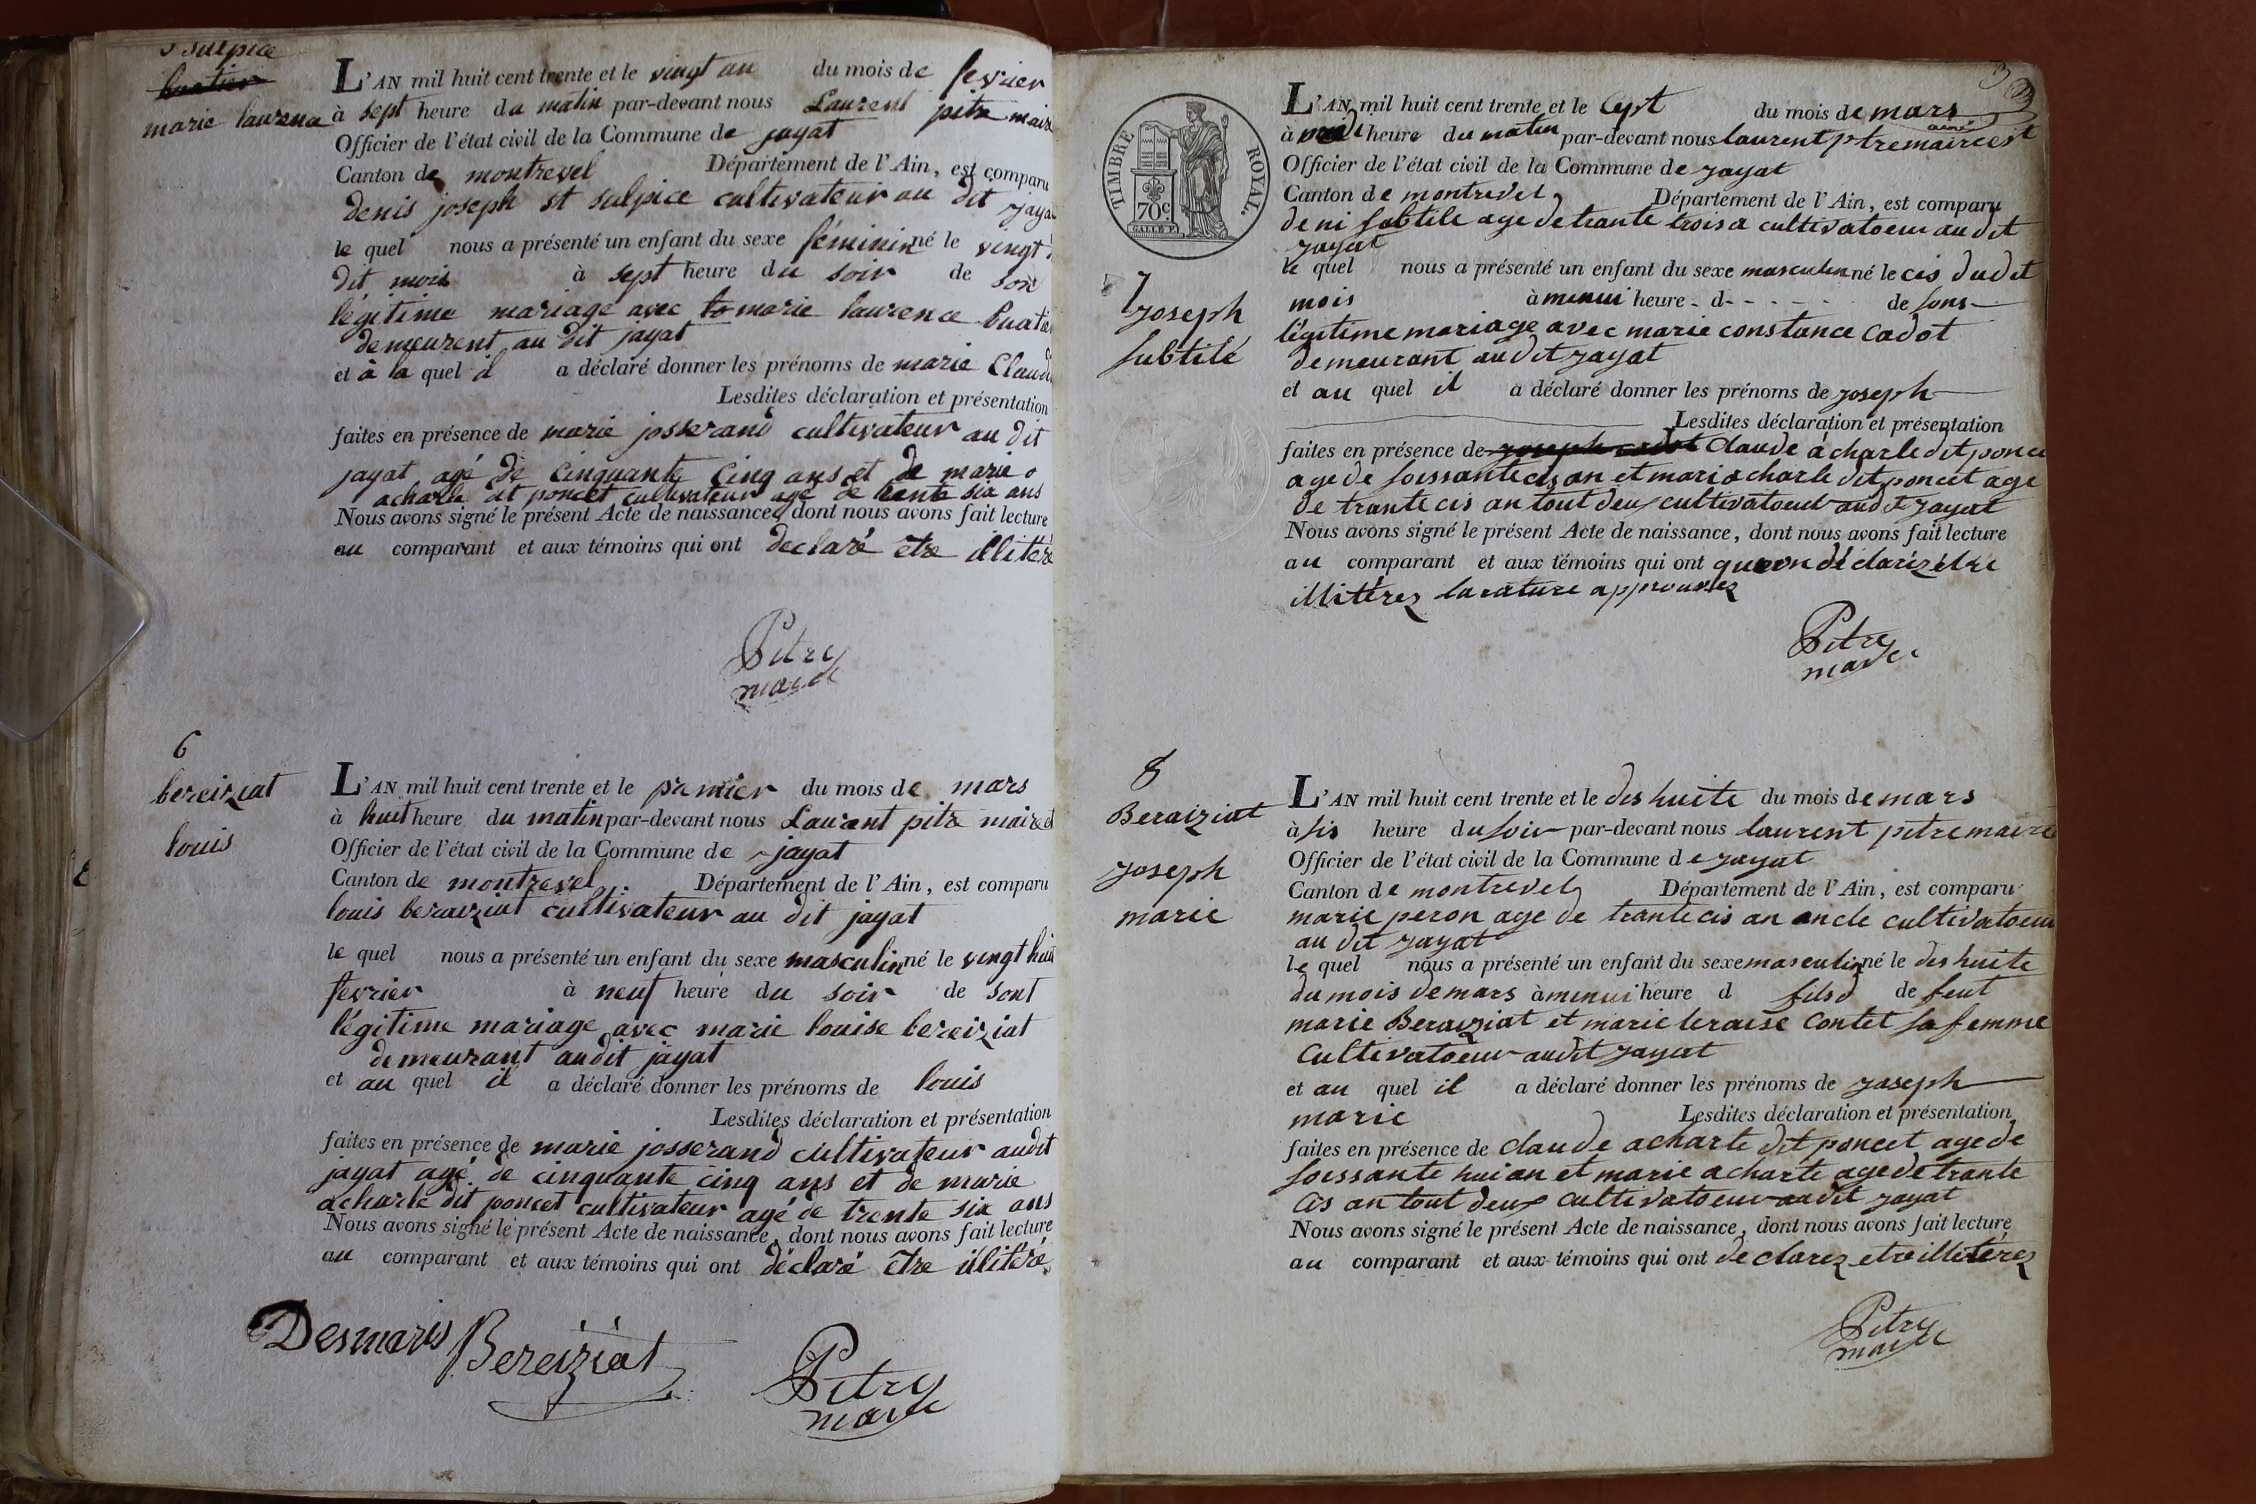 St sulpice
buatier
marie laurence
L'AN mil huit cent trente et le vingt un du mois de fevrier
à sept heure du matin par-devant nous Laurent pitre maire
Officier de l'état civil de la Commune de jayat
Canton de montrevel Département de l'Ain, est comparu
denis joseph st sulpice cultivateur au dit jayat
le quel nous a présenté un enfant du sexe féminin né le vingt
dit mois à sept heure du soir de son
légitime mariage avec marie laurence buatier
demeurent au dit jayat
et à la quel il a déclaré donner les prénoms de marie Claudi
Lesdites déclaration et présentation
faites en présence de marie josserand cultivateur au dit
jayat agé de cinquante cinq ans et de marie
acharle dit poncet cultivateur agé de trente six ans
Nous avons signé le présent Acte de naissance, dont nous avons fait lecture
au comparant et aux témoins qui ont declaré etre illitéré
Pitre
maire
6
bereiziat
louis
L'AN mil huit cent trente et le premier du mois de mars
à huit heure du matin par-devant nous Laurent pitre maire et
Officier de l'état civil de la Commune de jayat
Canton de montrevel Département de l'Ain, est comparu
louis beraiziat cultivateur au dit jayat
le quel nous a présenté un enfant du sexe masculin né le vingt huit
fevrier à neuf heure du soir de sont
légitime mariage avec marie louise bereiziat
demeurant audit jayat
et au quel il a déclaré donner les prénoms de louis
Lesdites déclaration et présentation
faites en présence de marie josserand cultivateur audit
jayat agé de cinquante cinq ans et de marie
acharle dit poncet cultivateur agé de trente six ans
Nous avons signé le présent Acte de naissance, dont nous avons fait lecture
au comparant et aux témoins qui ont déclaré être illitéré
Desmaris Bereiziat
Pitre
maire
TIMBRE ROYAL.
70c
7
joseph
subtile
L'AN mil huit cent trente et le cept du mois de mars
à heure du matin par-devant nous laurent pitre maire est
Officier de l'état civil de la Commune de jayat
Canton de montrevel Département de l'Ain, est comparu
deni subtile age de trante trois a cultivatoeur au dit
jayat
le quel nous a présenté un enfant du sexe masculin né le cis dudit
mois à minui heure d de sons
légitime mariage avec marie constance cadot
demeurant audit jayat
et au quel il a déclaré donner les prénoms de joseph
Lesdites déclaration et présentation
faites en présence de joseph cadot Claude acharle dit poncet
age de soissante cis an et marie acharle dit poncet age
de trante cis an tout deux cultivatoeur audit jayat
Nous avons signé le présent Acte de naissance, dont nous avons fait lecture
au comparant et aux témoins qui ont déclaréz être
illitérez la rature approuvez
Pitre
maire
8
Beraiziat
joseph
marie
L'AN mil huit cent trente et le des huite du mois de mars
à sis heure du soir par-devant nous laurent pitre maire
Officier de l'état civil de la Commune de jayat
Canton de montrevel Département de l'Ain, est comparu
marie peron age de trante cis an oncle cultivatoeur
au dit jayat
le quel nous a présenté un enfant du sexe masculin né le des huite
du mois de mars à minui heure d fils d de feut
marie Beraiziat et marie teraise contet sa femme
cultivatoeur audit jayat
et au quel il a déclaré donner les prénoms de joseph
marie Lesdites déclaration et présentation
faites en présence de claude acharle dit poncet age de
soissante hui an et marie acharle age de trante
cis an tout deux cultivatoeur audit jayat
Nous avons signé le présent Acte de naissance, dont nous avons fait lecture
au comparant et aux témoins qui ont declarez etre illitérez
Pitre
maire